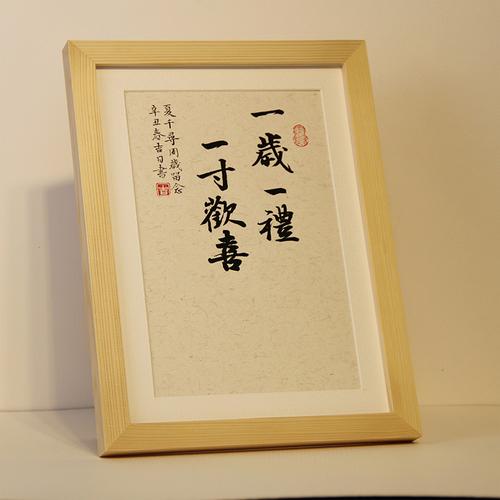 一歲一禮
一寸歡喜
夏千尋周歲留念
辛丑春吉日書